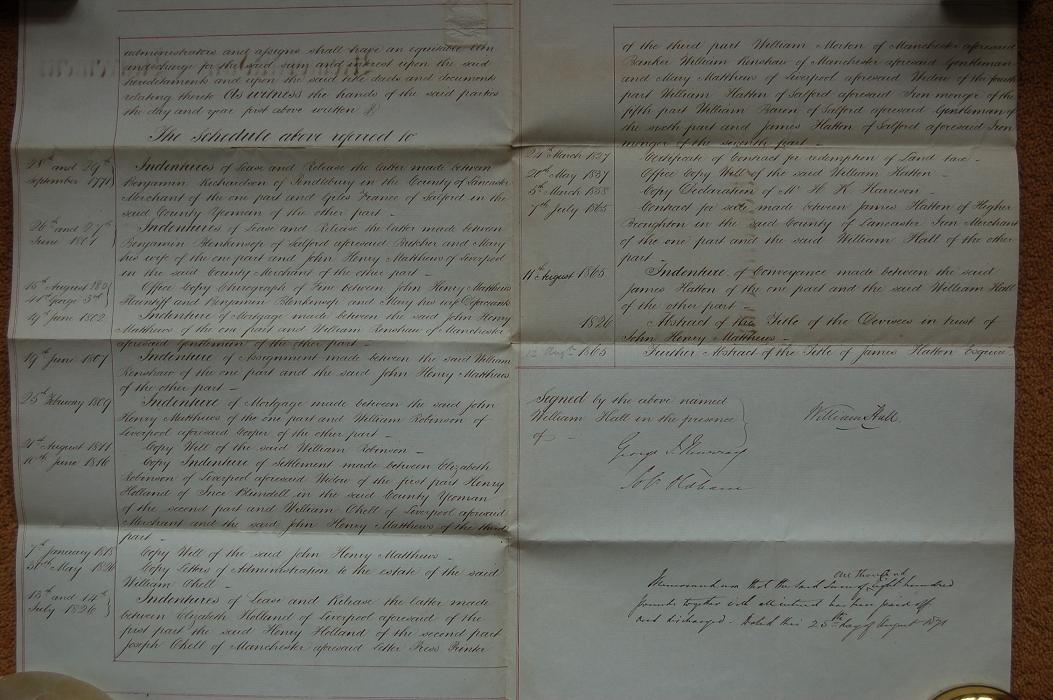 administrators and assigns shall have an equitable lien
and charge for the said sum and interest upon the said
hereditaments and upon the said title deeds and documents
relating thereto As witness the hands of the said parties
the day and year first above written
The Schedule above referred to
28th and 29th September 1771
Indentures of Lease and Release the latter made between
Benjamin Richardson of Pendlebury in the County of Lancaster
Merchant of the one part and Giles France of Salford in the
said County Yeoman of the other part –
26th and 27th June 1801
Indentures of Lease and Release the latter made between
Benjamin Blenkinsop of Salford aforesaid Butcher and Mary
his wife of the one part and John Henry Matthews of Liverpool
in the said County Merchant of the other part –
15th August 1801
41st George 3rd
Office Copy Chirograph of Fine between John Henry Matthews
Plaintiff and Benjamin Blenkinsop and Mary his wife Deforciants
4th June 1802
Indenture of Mortgage made between the said John Henry
Matthews of the one part and William Renshaw of Manchester
aforesaid Gentleman of the other part –
19th June 1807
Indenture of Assignment made between the said William
Renshaw of the one part and the said John Henry Matthews
of the other part –
25th February 1809
Indenture of Mortgage made between the said John
Henry Matthews of the one part and William Robinson of
Liverpool aforesaid Cooper of the other part –
21st August 1811
Copy Will of the said William Robinson –
10th June 1816
Copy Indenture of Settlement made between Elizabeth
Robinson of Liverpool aforesaid Widow of the first part Henry
Holland of Ince Blundell in the said County Yeoman
of the second part and William Okell of Liverpool aforesaid
Merchant and the said John Henry Matthews of the third
part –
7th January 1818
Copy Will of the said John Henry Matthews –
31st May 1826
Copy Letters of Administration to the estate of the said
William Okell –
13th and 14th July 1826
Indentures of Lease and Release the latter made
between Elizabeth Holland of Liverpool aforesaid of the
first part the said Henry Holland of the second part
Joseph Okell of Manchester aforesaid Letter Press Printer
of the third part William Morton of Manchester aforesaid
Banker William Renshaw of Manchester aforesaid Gentleman
and Mary Matthews of Liverpool aforesaid Widow of the fourth
part William Hatton of Salford aforesaid Iron monger of the
fifth part William Bacon of Salford aforesaid Gentleman of
the sixth part and James Hatton of Salford aforesaid Iron
monger of the seventh part –
24th March 1827
Certificate of Contract for redemption of Land tax –
20th May 1837
Office Copy Will of the said William Hatton –
5th March 1858
Copy Declaration of Mr H. K. Harrison –
7th July 1865
Contract for sale made between James Hatton of Higher
Broughton in the said County of Lancaster Iron Merchant
of the one part and the said William Hall of the other
part –
11th August 1865
Indenture of Conveyance made between the said
James Hatton of the one part and the said William Hall
of the other part –
1826
Abstract of the Title of the Devisees in trust of
John Henry Matthews –
1865
Further Abstract of the Title of James Hatton Esquire –
Signed by the above named
William Hall in the presence
of –
William Hall
George
Job Oldham
Memorandum that the said Sum of One thousand eight hundred
pounds together with all interest has been paid off
and discharged. Dated this 25th day of August 1871